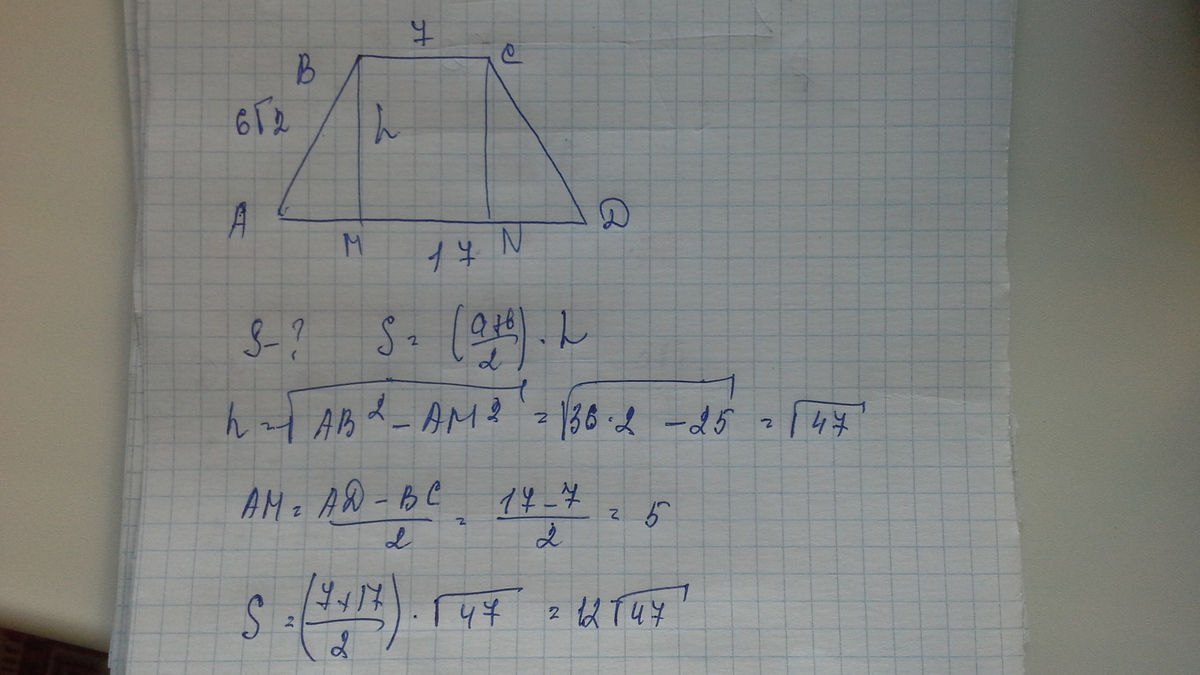 7
B C
6√2 h
A D
M 17 N
S-? S = (a+b/2) · h
h = √AB² - AM² = √36·2 - 25 = √47
AM = AD - BC/2 = 17-7/2 = 5
S = (7+17/2) · √47 = 12√47